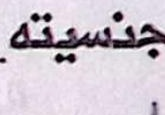 جنسيته.